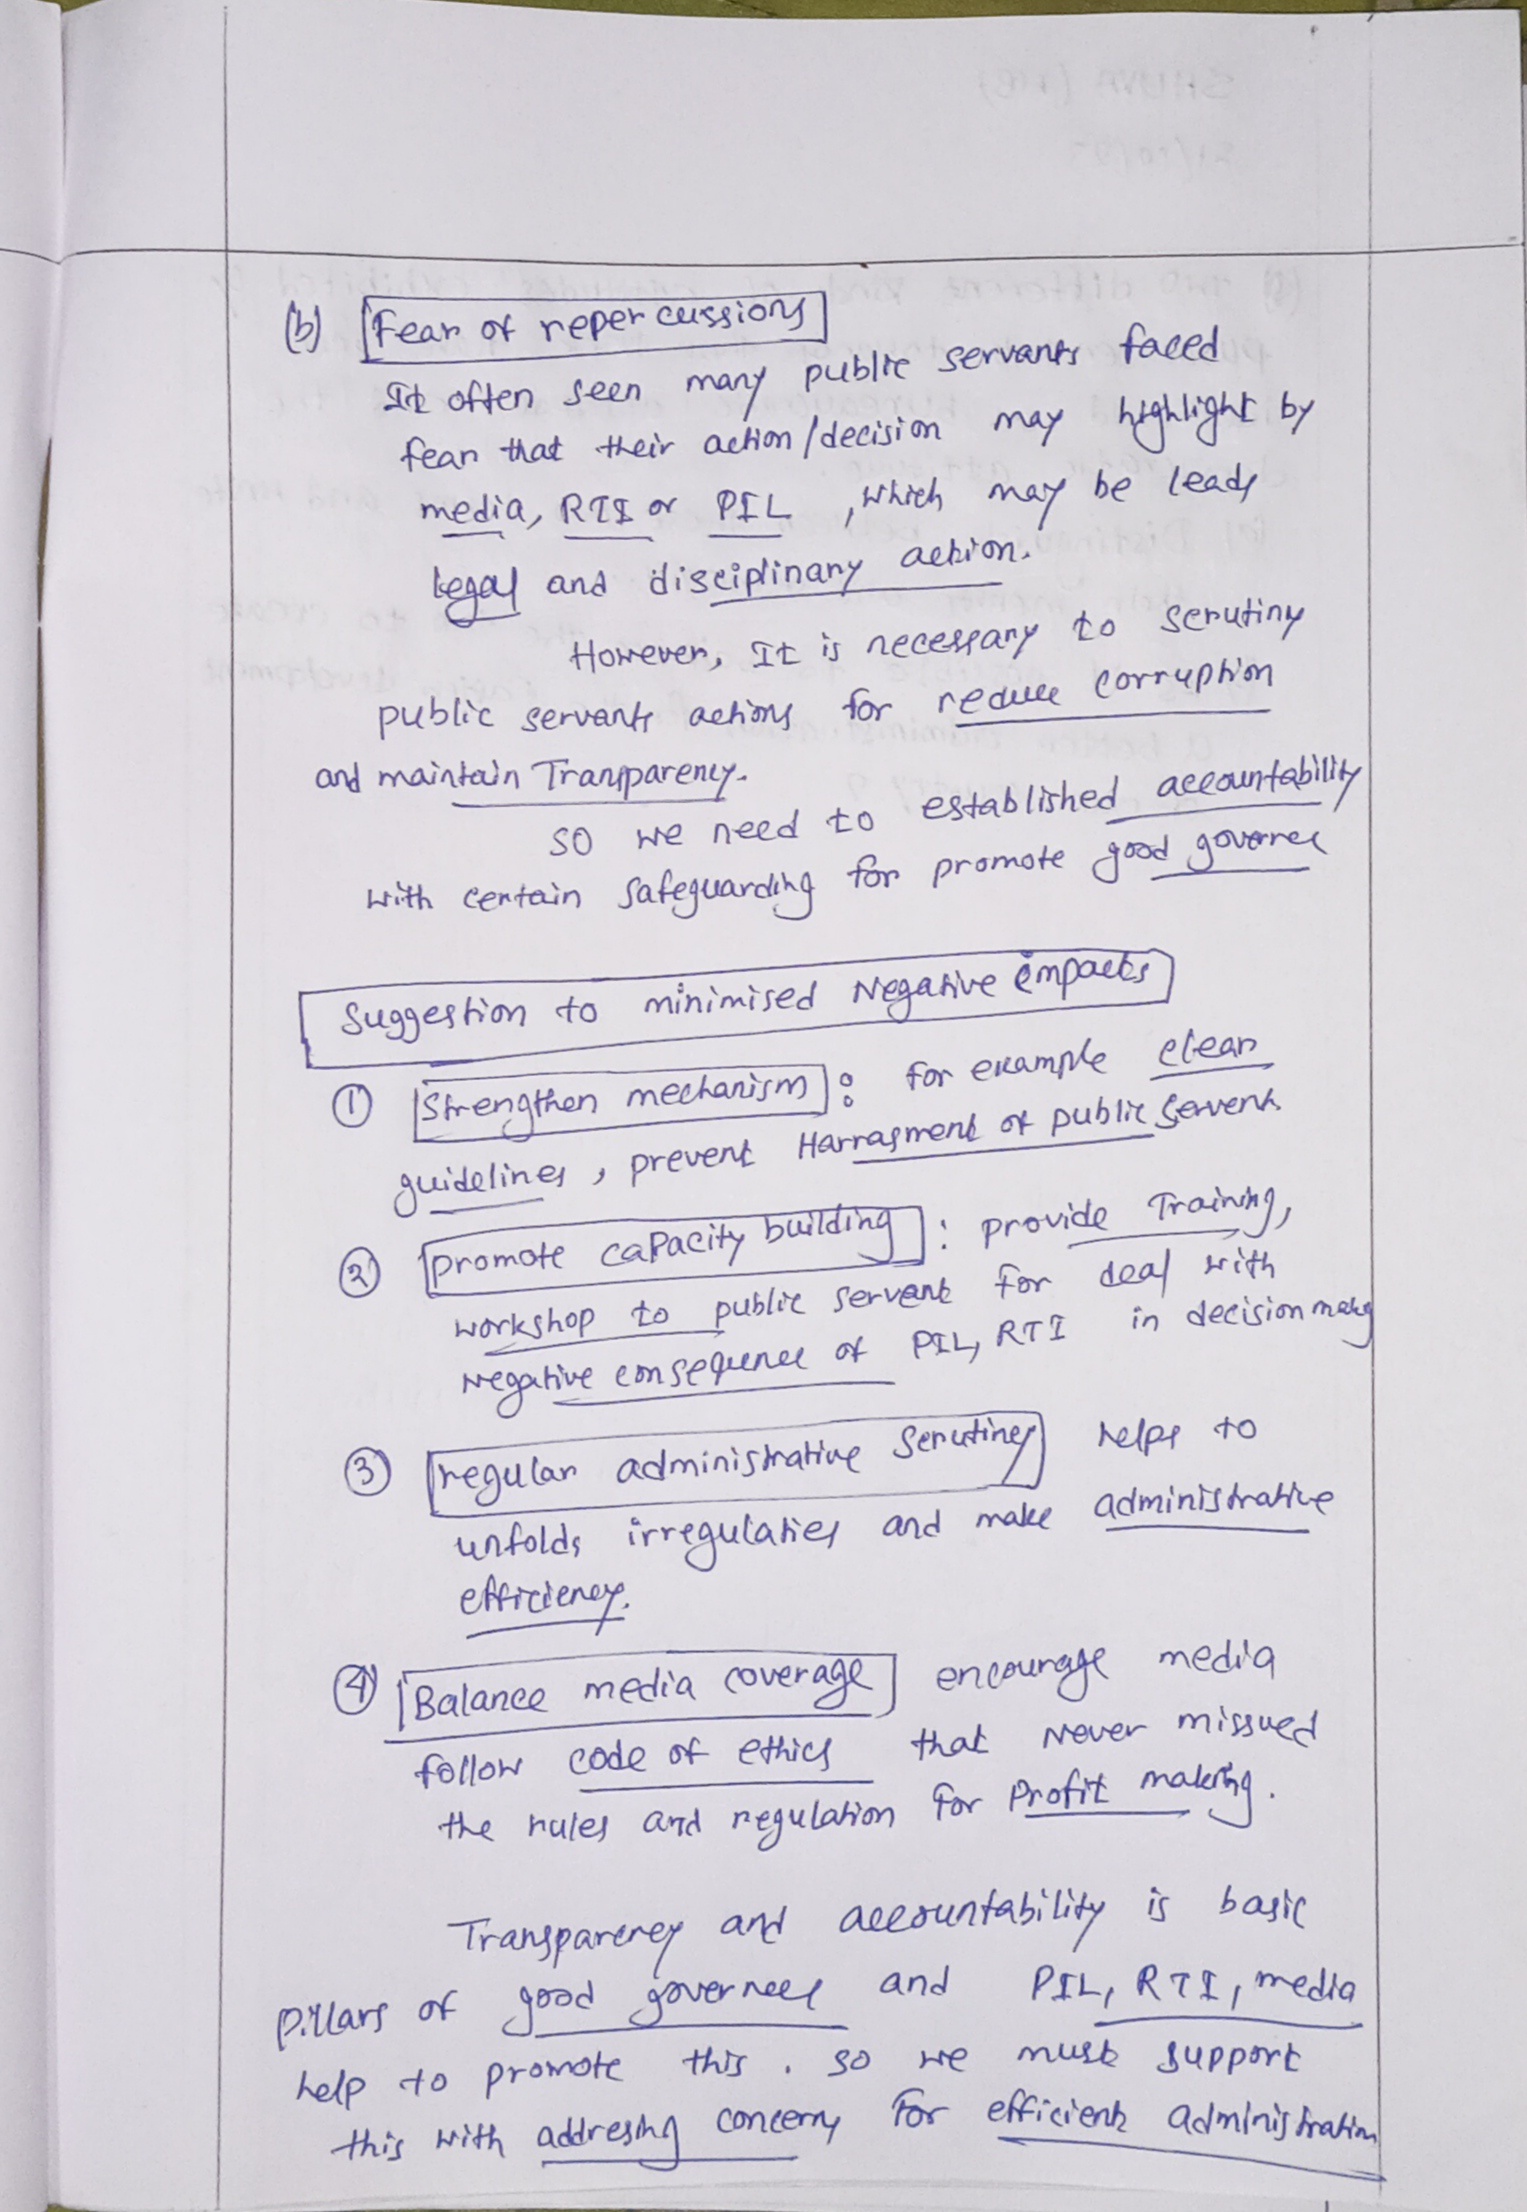 (b) Fear of repercussions
It often seen many public servants faced
fear that their action/decision may highlight by
media, RTI or PIL, which may be leads
legal and disciplinary action.
However, It is necessary to scrutiny
public servants actions for reduce corruption
and maintain Transparency.
so we need to established accountability
with certain safeguarding for promote good governce
Suggestion to minimised Negative impacts
① Strengthen mechanism : for example clear
guidelines, prevent Harrasment of public servent.
② promote capacity building : provide Training,
workshop to public servant for deal with
negative consequence of PIL, RTI in decision making
③ regular administrative scrutiney helps to
unfolds irregulaties and make administrative
efficiency.
④ Balance media coverage encourage media
follow code of ethics that never missued
the rules and regulation for Profit making.
Transparency and accountability is basic
pillars of good governece and PIL, RTI, media
help to promote this. so we must support
this with addresing concerns for efficient administration